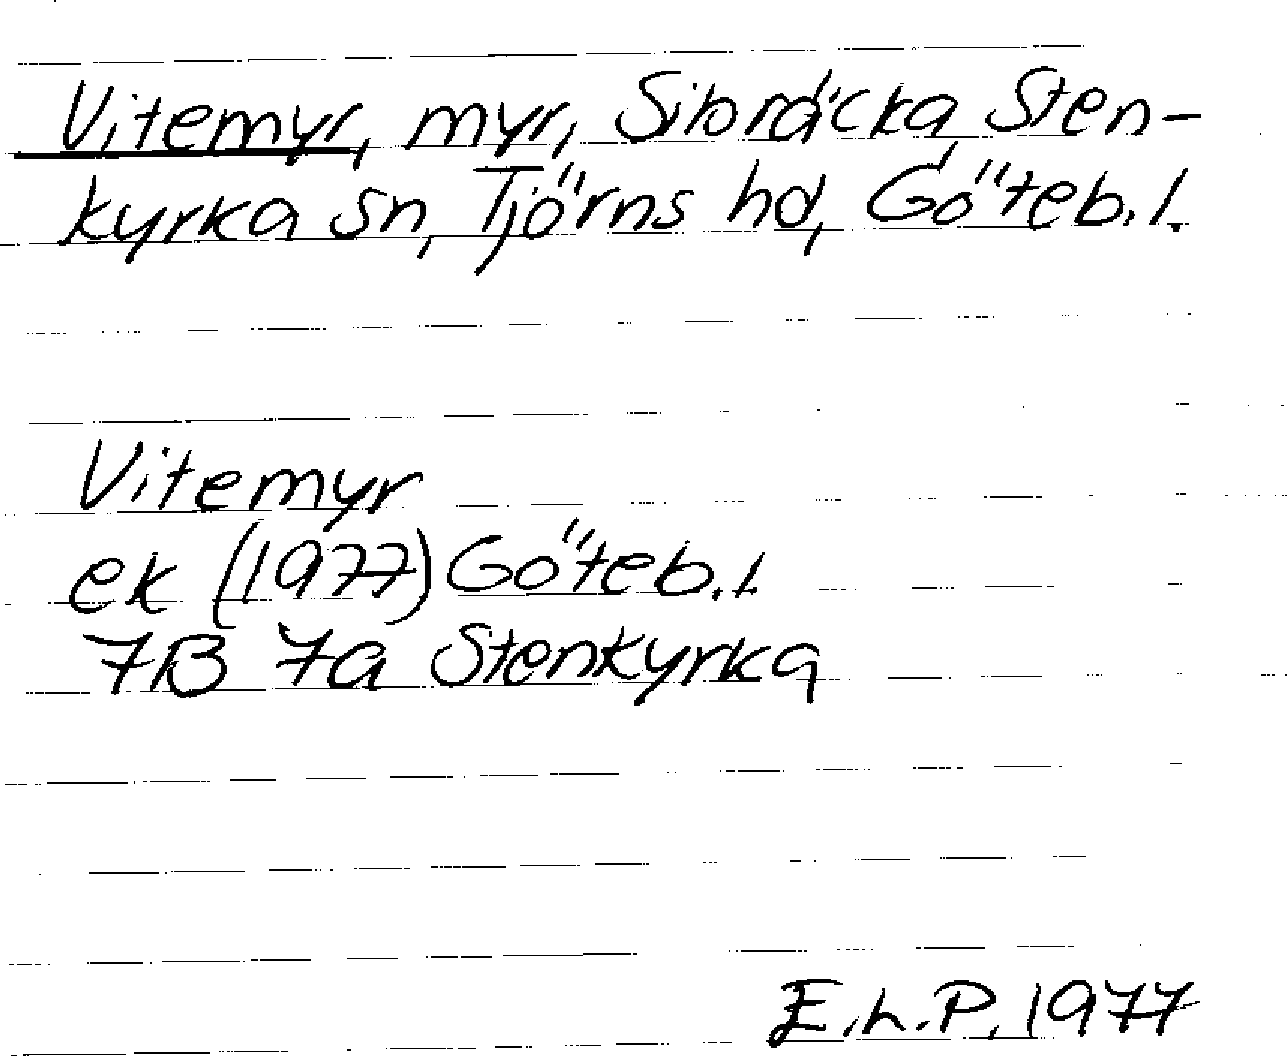 Vitemyr, myr, Sibräcka, Sten-
kyrka sn, Tjörns hd, Göteb.l.
Vitemyr
ek (1977) Göteb.l
7B 7a Stenkyrka
E.h.P. 1977